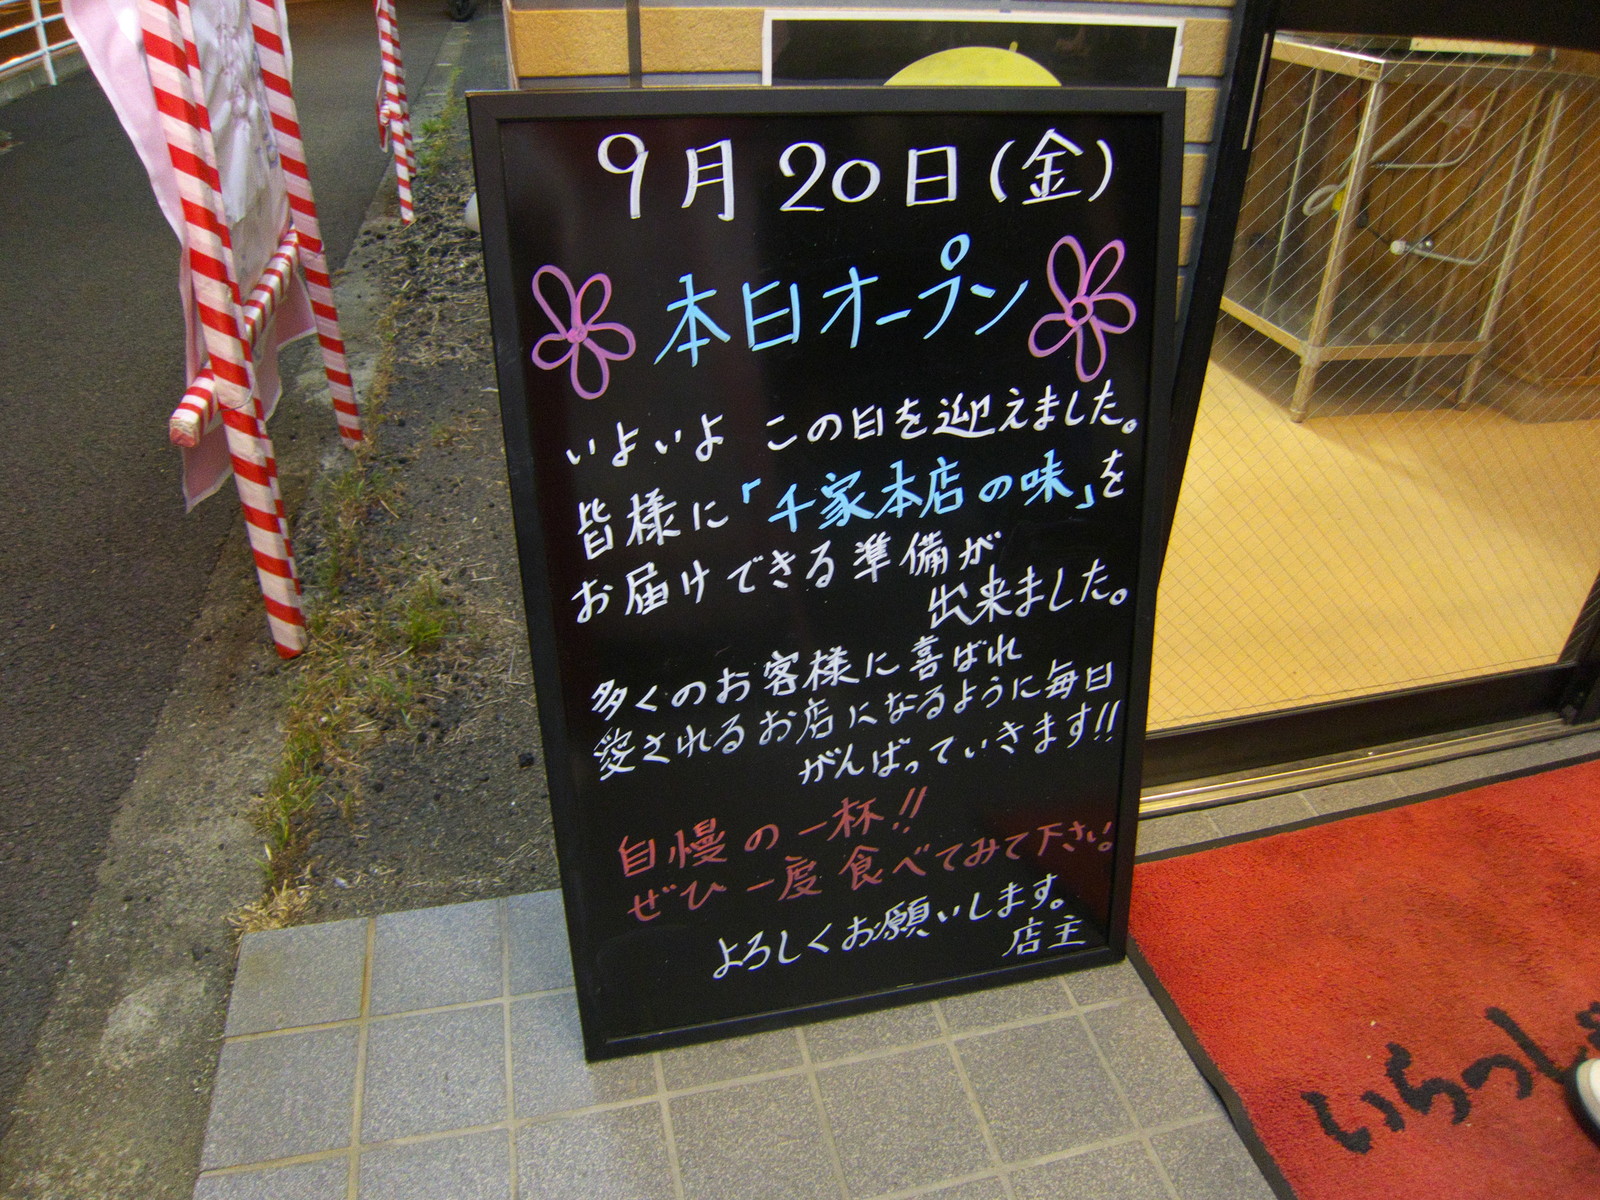 9月20日(金)
本日オープン
いよいよ この日を迎えました。
皆様に「千家本店の味」を
お届けできる準備が
出来ました。
多くのお客様に喜ばれ
愛されるお店になるように毎日
がんばっていきます!!
自慢の一杯!!
ぜひ一度食べてみて下さい!
よろしくお願いします。
店主
いらっしゃ